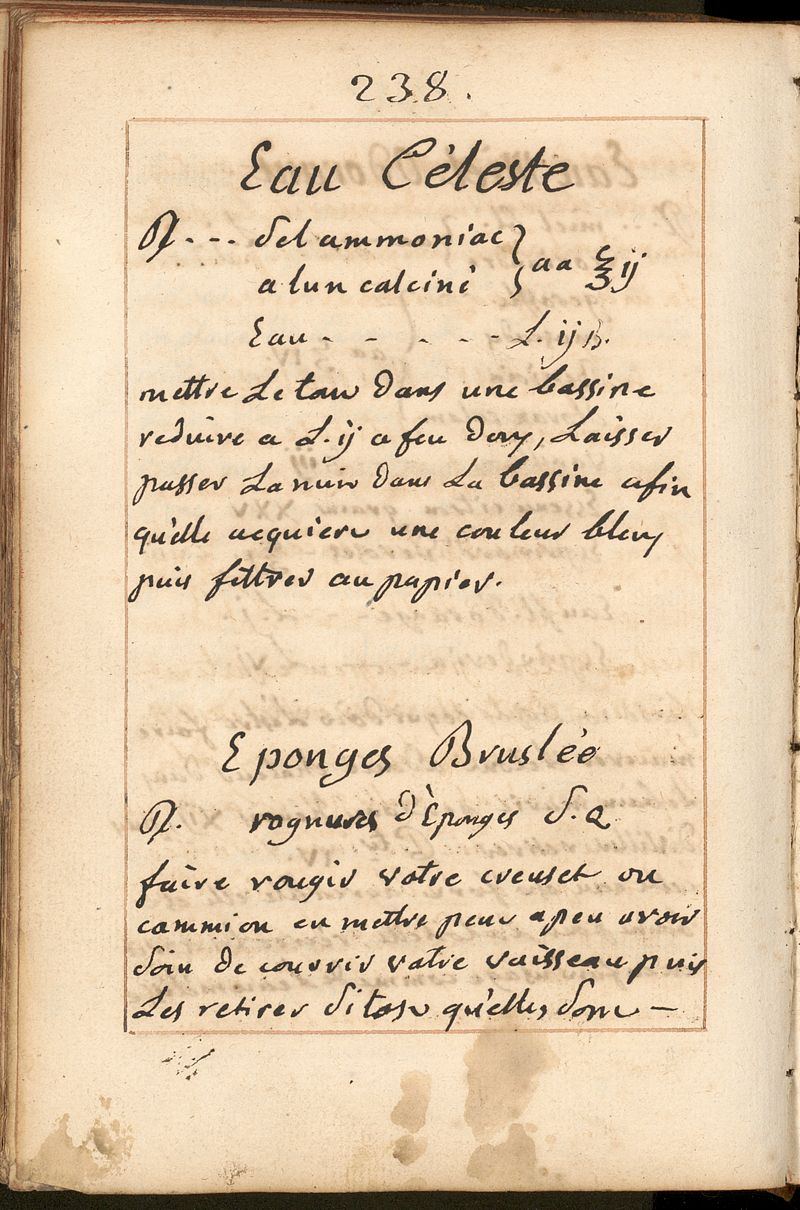 238.
Eau Céleste
℞ - - - sel ammoniac } aa ℥ ij
alun calciné
Eau - - - - - L. ij ß.
mettre Le tout dans une bassine
reduire a L. ij a feu doux, Laisser
passer La nuit dans La bassine afin
qu'elle acquiere une couleur bleuë
puis filtrer au papier.
Eponges Bruslée
℞. rognures d'Eponges S. Q
faire rougir votre creuset ou
cammion en mettre peu apeu avoir
soin de couvrir votre vaisseau puis
Les retirer sitost qu'elles sont —